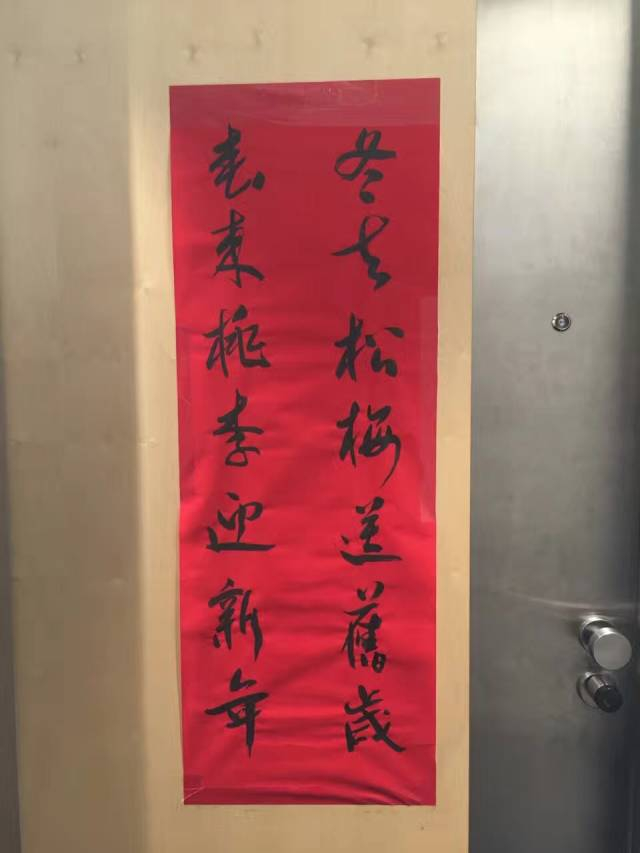 冬去松梅送舊歲
春来桃李迎新年